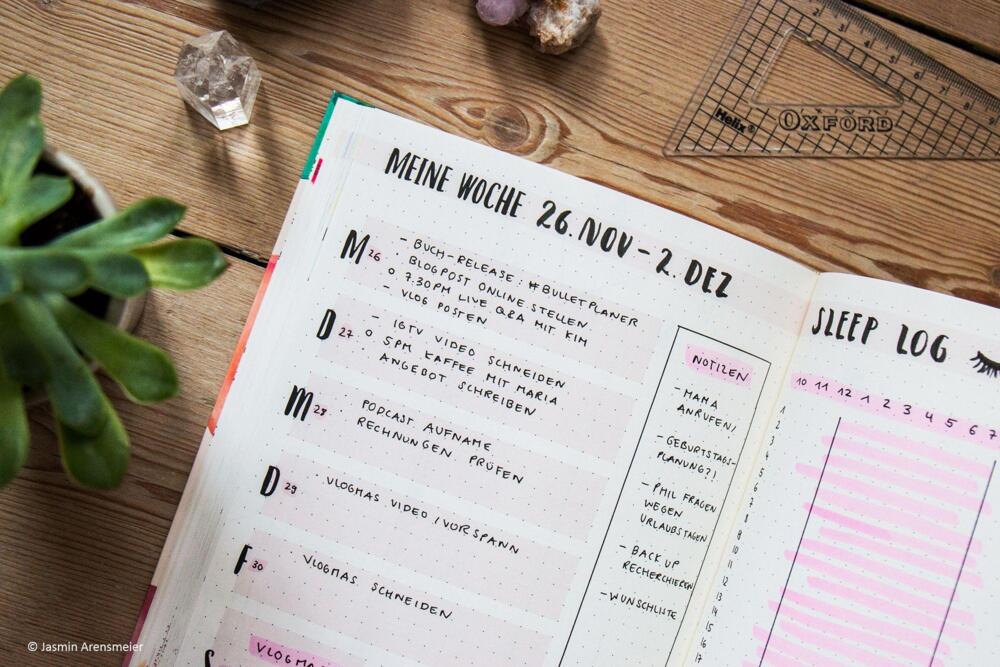 Helix®
OXFORD
MEINE WOCHE 26.NOV-2.DEZ
M 26
- BUCH-RELEASE: #BULLETPLANER
· BLOGPOST ONLINE STELLEN
o 7.30PM LIVE Q&A MIT KIM
- VLOG POSTEN
D 27
- IGTV VIDEO SCHNEIDEN
o 5PM KAFFEE MIT MARIA
· ANGEBOT SCHREIBEN
M 28
· PODCAST AUFNAME
· RECHNUNGEN PRÜFEN
D 29
· VLOGMAS VIDEO/VORSPANN
F 30
· VLOGMAS SCHNEIDEN
NOTIZEN
- MAMA
ANRUFEN!
- GEBURTSTAGS-
PLANUNG?!
- PHIL FRAGEN
WEGEN
URLAUBSTAGEN
- BACK UP
RECHERCHIEREN
- WUNSCHLISTE
SLEEP LOG
10 11 12 1 2 3 4 5 6 7
1
2
3
4
5
6
7
8
9
10
11
12
13
14
15
16
17
© Jasmin Arensmeier